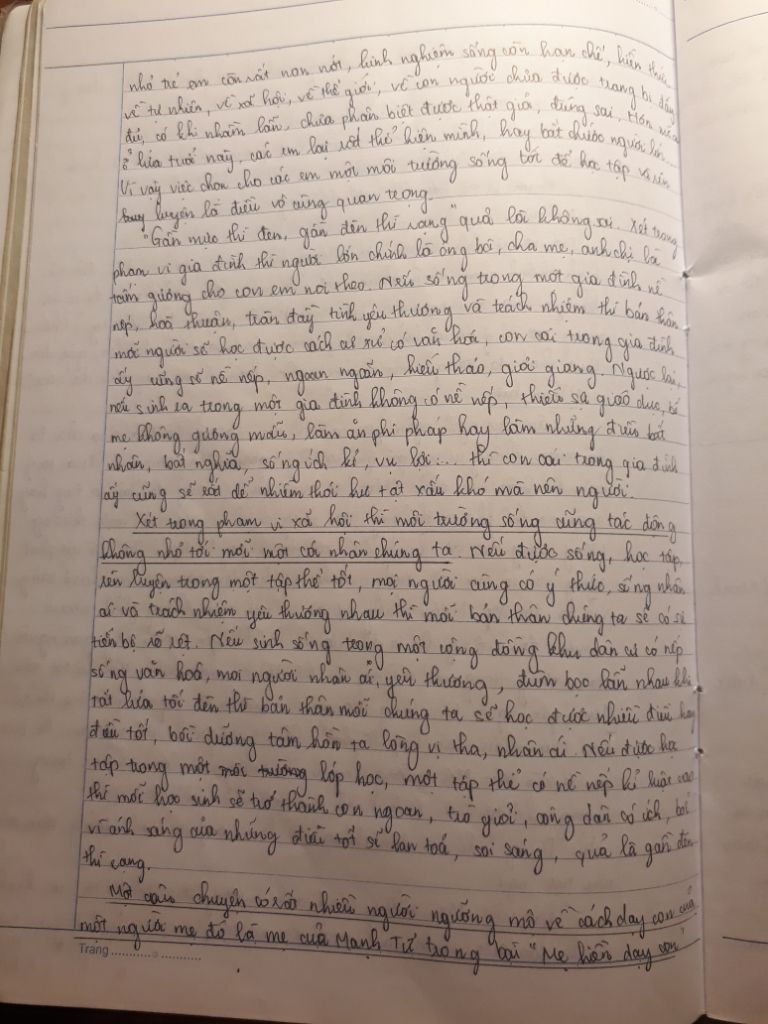 nhỏ trẻ em còn rất non nớt, kinh nghiệm sống còn hạn chế, kiến thức
về tự nhiên, về xã hội, về thế giới, về con người chưa được trang bị đầy
đủ, có khi nhầm lẫn, chưa phân biệt được thật giả, đúng sai. Hơn nữa
ở lứa tuổi này, các em lại rất thể hiện mình, hay bắt chước người lớn
Vì vậy việc chọn cho các em một môi trường sống tốt để học tập và rèn
luyện là điều vô cùng quan trọng.
"Gần mực thì đen, gần đèn thì rạng" quả là không sai. Xét trong
phạm vi gia đình thì người lớn chính là ông bà, cha mẹ, anh chị là
tấm gương cho con em noi theo. Nếu sống trong một gia đình nề
nếp, hoà thuận, tràn đầy tình yêu thương và trách nhiệm thì bản thân
mỗi người sẽ học được cách cư xử có văn hoá, con cái trong gia đình
ấy cũng sẽ nề nếp, ngoan ngoãn, hiếu thảo, giỏi giang. Ngược lại,
nếu sinh ra trong một gia đình không có nề nếp, thiếu sự giáo dục, bố
mẹ không gương mẫu, làm ăn phi pháp hay làm những điều bất
nhân, bất nghĩa, sống ích kỉ, vụ lợi... thì con cái trong gia đình
ấy cũng sẽ rất dễ nhiễm thói hư tật xấu khó mà nên người.
Xét trong phạm vi xã hội thì môi trường sống cũng tác động
không nhỏ tới mỗi một cá nhân chúng ta. Nếu được sống, học tập,
rèn luyện trong một tập thể tốt, mọi người cùng có ý thức, sống nhân
ái và trách nhiệm yêu thương nhau thì mỗi bản thân chúng ta sẽ có sự
tiến bộ rõ rệt. Nếu sinh sống trong một cộng đồng khu dân cư có nếp
sống văn hoá, mọi người nhân ái, yêu thương, đùm bọc lẫn nhau khi
tắt lửa tối đèn thì bản thân mỗi chúng ta sẽ học được nhiều điều hay
điều tốt, bồi dưỡng tâm hồn ta lòng vị tha, nhân ái. Nếu được học
tập trong một môi trường lớp học, một tập thể có nề nếp kỉ luật cao
thì mỗi học sinh sẽ trở thành con ngoan, trò giỏi, công dân có ích, bởi
vì ánh sáng của những điều tốt sẽ lan toả, soi sáng, quả là gần đèn
thì rạng.
Một câu chuyện có rất nhiều người ngưỡng mộ về cách dạy con của
một người mẹ đó là mẹ của Mạnh Tử trong bài "Mẹ hiền dạy con"
Trang ....................